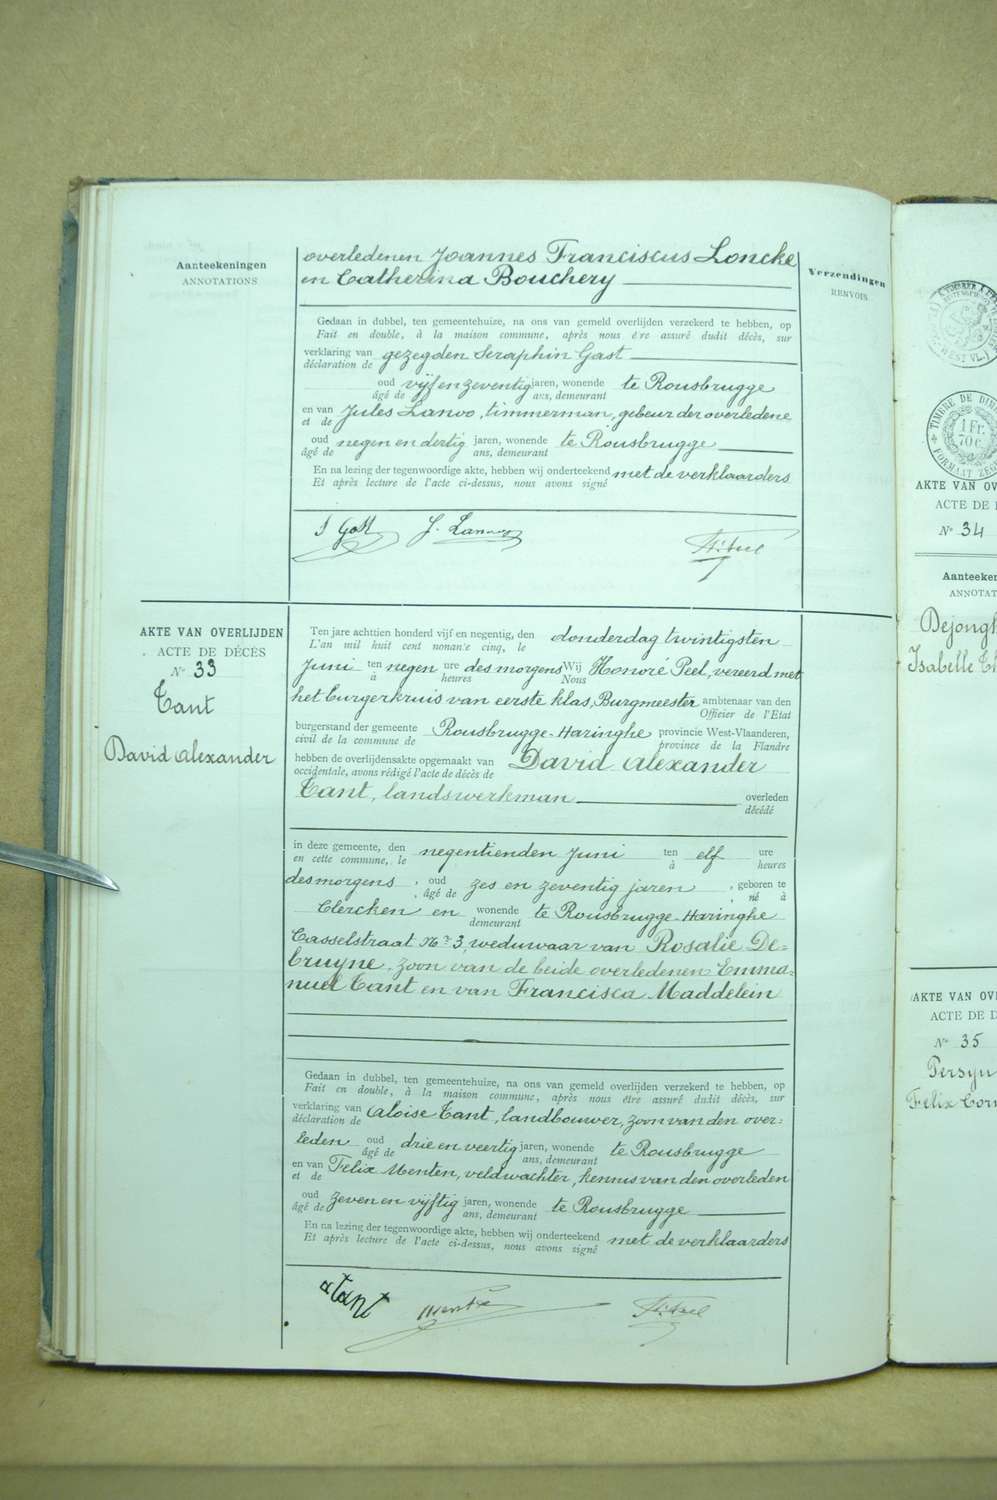 Aanteekeningen
ANNOTATIONS
Verzendingen
RENVOIS
overledenen Joannes Franciscus Loncke
en Catherina Bouchery
Gedaan in dubbel, ten gemeentehuize, na ons van gemeld overlijden verzekerd te hebben, op
Fait en double, à la maison commune, après nous être assuré dudit décès, sur
verklaring van gezegden Seraphin Gast
déclaration de
oud vijf en zeventig jaren, wonende te Rousbrugge
âgé de ans, demeurant
en van Jules Lanoo, timmerman, gebeur der overledene
et de
oud negen en dertig jaren, wonende te Rousbrugge
âgé de ans, demeurant
En na lezing der tegenwoordige akte, hebben wij onderteekend met de verklaarders
Et après lecture de l'acte ci-dessus, nous avons signé
S Gast J. Lanoo
AKTE VAN OVERLIJDEN
ACTE DE DÉCÈS
N° 33
Tant
David Alexander
Ten jare achttien honderd vijf en negentig, den donderdag twintigsten
L'an mil huit cent nonante cinq, le
Juni ten negen ure des morgens Wij Honoré Peel, vereerd met
à heures Nous
het burgerkruis van eerste klas, Burgmeester ambtenaar van den
Officier de l'Etat
burgerstand der gemeente Rousbrugge-Haringhe provincie West-Vlaanderen,
civil de la commune de province de la Flandre
hebben de overlijdensakte opgemaakt van David Alexander
occidentale, avons rédigé l'acte de décès de
Tant, landswerkman overleden
décédé
in deze gemeente, den negentienden Juni ten elf ure
en cette commune, le à heures
des morgens, oud zes en zeventig jaren, geboren te
, âgé de , né à
Clercken en wonende te Rousbrugge-Haringhe
demeurant
Casselstraat N° 3, weduwaar van Rosalie De=
bruyne, zoon van de beide overledenen Emma=
nuel Tant en van Francisca Maddelein
Gedaan in dubbel, ten gemeentehuize, na ons van gemeld overlijden verzekerd te hebben, op
Fait en double, à la maison commune, après nous être assuré dudit décès, sur
verklaring van Aloise Tant, landbouwer, zoon van den over=
déclaration de
leden oud drie en veertig jaren, wonende te Rousbrugge
âgé de ans, demeurant
en van Felix Menten, veldwachter, kennis van den overleden
et de
oud zeven en vijftig jaren, wonende te Rousbrugge
âgé de ans, demeurant
En na lezing der tegenwoordige akte, hebben wij onderteekend met de verklaarders
Et après lecture de l'acte ci-dessus, nous avons signé
a tant
TIMBRE DE DIM
1 Fr.
70 c.
FORMAAT ZEG
AKTE VAN OV
ACTE DE
N° 34
Aanteeken
ANNOTAT
Dejongh
Isabelle Th
AKTE VAN OV
ACTE DE D
N° 35
Persyn
Felix Corn